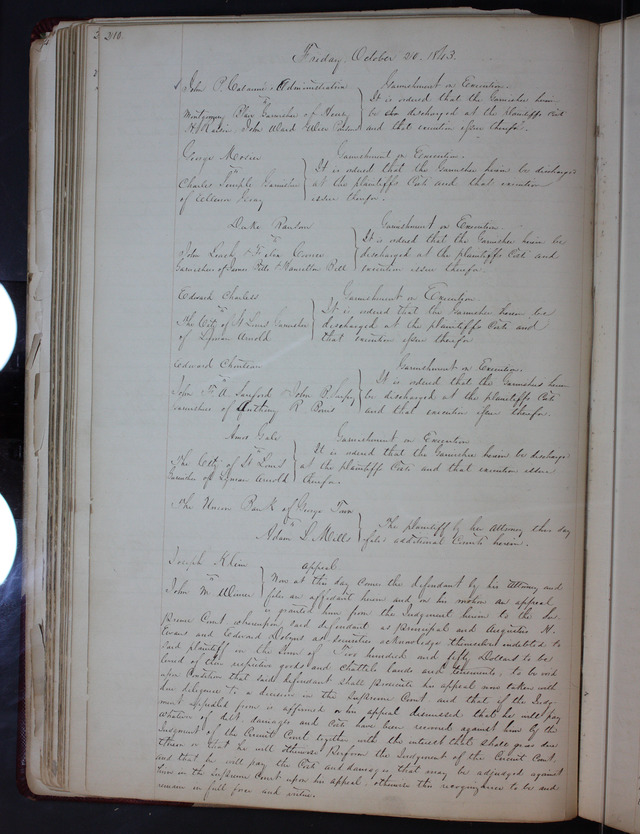 210.
Friday, October 20, 1843.
John P. Administration Garnishment on Execution.
vs It is ordered that the Garnishee herein
Montgomery Blair Garnishee of Henry be discharged at the plaintiffs Costs
John Ward and that execution issue therefor.
George Garnishment on Execution.
vs It is ordered that the Garnishee herein be discharged
Charles Semple Garnishee at the plaintiffs Costs and that execution
of issue therefor.
Duke Ransom Garnishment on Execution
vs It is ordered that the Garnishee herein be
John Leach & discharged at the plaintiffs Costs and
Garnishees of James Bell & Hamilton Bell execution issue therefor.
Edward Charless Garnishment on Execution
vs It is ordered that the Garnishee herein be
The City of St Louis Garnishee discharged at the plaintiffs Costs and
of Lyman Arnold that execution issue therefor
Edward Chouteau Garnishment on Execution.
vs It is ordered that the Garnishees herein
John F. A. Sanford & John B. Sarpy be discharged at the plaintiffs Costs
Garnishees of Anthony R and that execution issue therefor.
Amos Gale Garnishment on Execution
vs It is ordered that the Garnishee herein be discharged
The City of St Louis at the plaintiffs Costs and that execution issue
Garnishee of Lyman Arnold therefor.
The Union Bank of George Town
vs The plaintiff by her Attorney this day
Adam L. Mills files additional Counts herein.
Joseph Klein Appeal
vs Now at this day comes the defendant by his Attorney and
John M. Wimer files an affidavit herein and on his motion an appeal
is granted him from the Judgment herein to the Su-
preme Court whereupon said defendant as principal and Augustus H.
Evans and Edward Dobyns as securities acknowledge themselves indebted to
said plaintiff in the sum of Two hundred and fifty Dollars to be
levied of their respective goods and chattels lands and tenements, to be void
upon Condition that said defendant shall prosecute his appeal now taken with
due diligence to a decision in the Supreme Court and that if the Judg-
ment appealed from is affirmed or his appeal dismissed, that he will pay
whatever of debt damages and Costs have been recovered against him by the
Judgment of the Circuit Court together with the interest that shall grow due
thereon or that he will otherwise perform the Judgment of the Circuit Court,
and that he will pay the Costs and damages that may be adjudged against
him in the Supreme Court upon his appeal, otherwise this recognizance to be and
remain in full force and virtue.